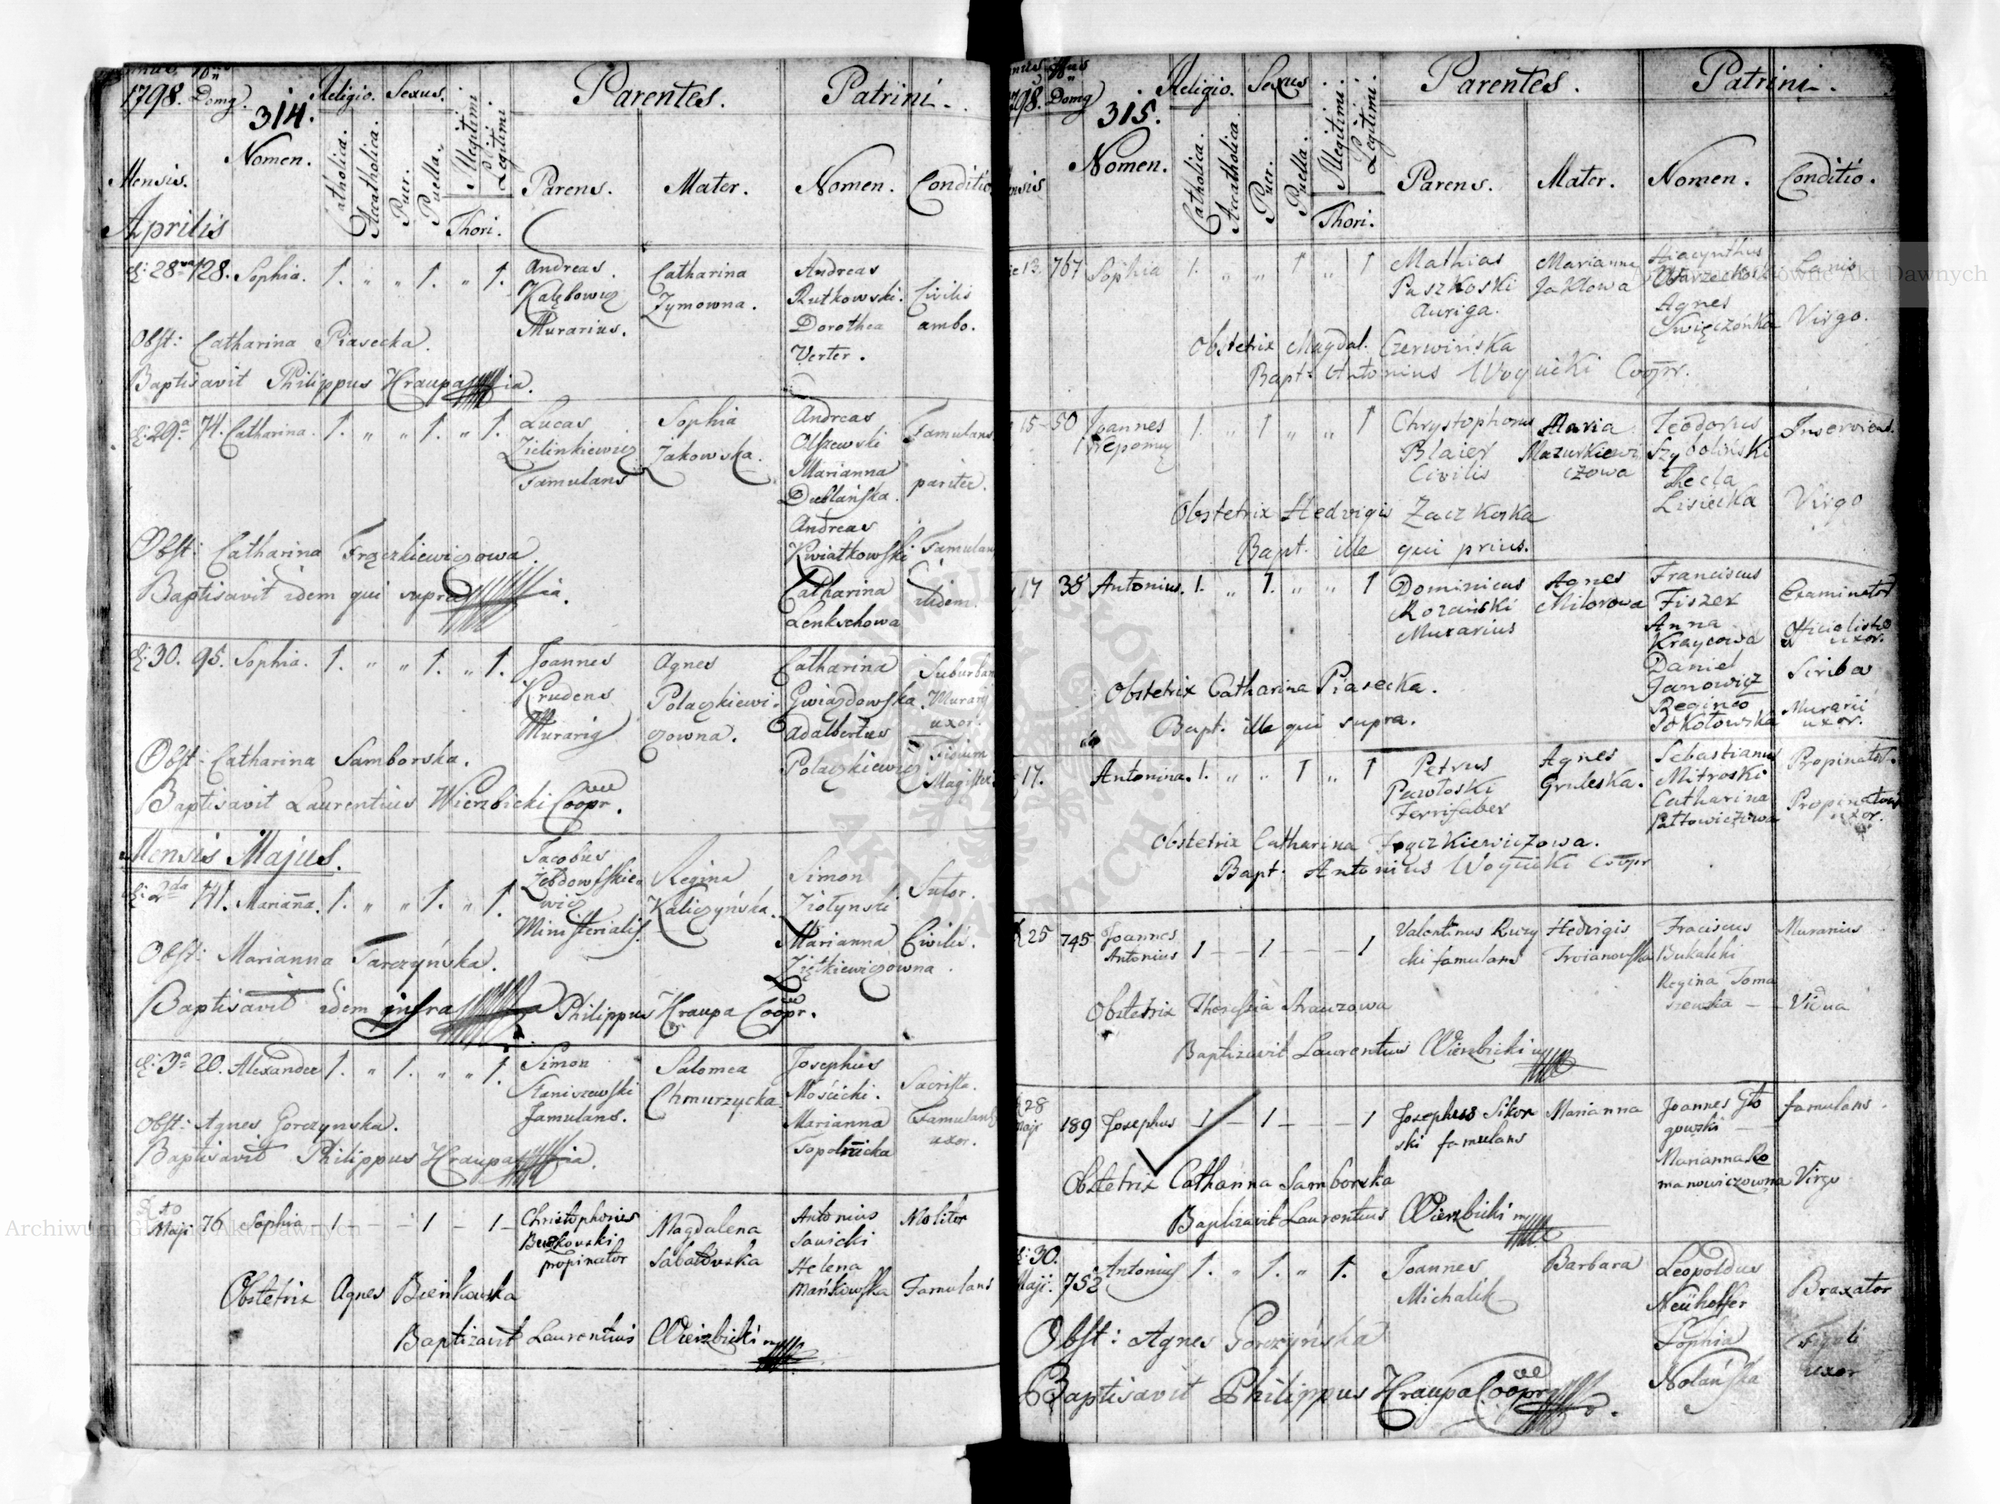 1798. Domg. 314. Religio. Sexus. Parentes. Patrini.
Mensis. Nomen. Catholica. Acatholica. Puer. Puella. Illegitimi Legitimi Thori. Parens. Mater. Nomen. Conditio
Aprilis
28 128. Sophia. 1. „ „ 1. „ 1. Andreas Catharina Andreas
Zymowna. Rutkowski. Civilis
Murarius. Dorothea ambo.
Obst: Catharina Piasecka. Verter.
Baptisavit Philippus Kraupa
29a 74. Catharina. 1. „ „ 1. „ 1. Lucas Sophia Andreas Famulans
Zielinkiewicz Jakowska. Olszewski
Famulans Marianna pariter.
Dublańska.
Andreas
Obst: Catharina Frączkiewiczowa Kwiatkowski Famulans
Baptisavit idem qui supra Catharina itidem.
Lenkschowa
30. 95. Sophia. 1. „ „ 1. „ 1. Joannes Agnes Catharina
Prudens Polaczkiewi- Gwiazdowska
czowna. Adalbertus uxor.
Obst: Catharina Samborska. Polaczkiewicz
Baptisavit Laurentius Wierzbicki Coopr.
Mensis Majus.
141. Marianna. 1. „ „ 1. „ 1. Jacobus Regina Simon Sutor.
Kaliczyńska. Ziołynski
Ministerialis. Marianna Civilis.
Obst: Marianna Tarczyńska. Ziętkiewiczowna.
Baptisavit idem infra Philippus Kraupa Coopr.
3a 20. Alexander 1. „ 1. „ „ 1. Simon Salomea Josephus
Staniszewski Chmurzycka Mościcki. Sacrista.
Famulans. Marianna Famulans
Obst: Agnes Gorczynska. Topolnicka uxor.
Baptisavit Philippus Kraupa
Maji 76 Sophia 1 – – 1 – 1 Christophorus Magdalena Antonius Molitor
Buzkowski Sabatowska Sawicki
propinator Helena
Obstetrix Agnes Bieńkowska Mańkowska Famulans
Baptizavit Laurentius Wierzbicki
98. Domg. 315. Religio. Sexus Parentes. Patrini.
Nomen. Catholica. Acatholica. Puer. Puella. Illegitimi. Legitimi. Thori. Parens. Mater. Nomen. Conditio.
13. 767 Sophia 1. „ „ 1 „ 1 Mathias Marianna Hiacynthus
Paszkoski Jaktowa
Auriga. Agnes
Swięczońka Virgo.
Obstetrix Magdal. Czerwińska
Bapt: Antonius Woyucki Coopr.
15 50 Joannes Nepomuc 1. „ 1 „ „ 1 Chrystophorus Maria Teodorus Inserviens.
Blaier Mazurkiewi Szydoliński
Civilis czowa Thecla
Lisiecka Virgo
Obstetrix Hedvigis Zaczkoska
Bapt. ille qui prius.
17 38 Antonius. 1. „ 1. „ „ 1 Dominicus Agnes Franciscus Examinator
Rozański Mitorowa Fiszer
Murarius Anna
Kraycowa uxor.
Daniel Scriba
Obstetrix Catharina Piasecka. Janowicz
Regina Murarii
Bapt. ille qui supra. Sokołowska uxor.
17. Antonina. 1. „ „ 1 „ 1 Petrus Agnes Sebastianus Propinator.
Pawłoski Gruleska. Mitroski
Ferrifaber Catharina
Pałtowiczowa uxor.
Obstetrix Catharina Frączkiewiczowa.
Bapt: Antonius Woyucki Coopr
25 745 Joannes Antonius 1 – 1 – – 1 Valentinus Ruzy Hedvigis Franciscus Murarius
cki famulans Troianowska Bukalski
Regina Toma
szewska – Vidua
Obstetrix Theressia Strauzowa
Baptizavit Laurentius Wierzbicki
28 Maji 189 Josephus 1 – 1 – – 1 Josephus Sikor Marianna Joannes Gło famulans
ski famulans gowski
Marianna Ro
manowiczowna Virgo
Obstetrix Catharina Samborska
Baptizavit Laurentius Wierzbicki
30. Maji. 752 Antonius 1. „ 1. „ 1. Joannes Barbara Leopoldus Braxator
Michalik Neuhoffer
Obst: Agnes Gorczyńska Sophia Figuli
Baptisavit Philippus Kraupa Coopr Nolańska uxor
Archiwum Główne Akt Dawnych
Archiwum Główne Akt Dawnych